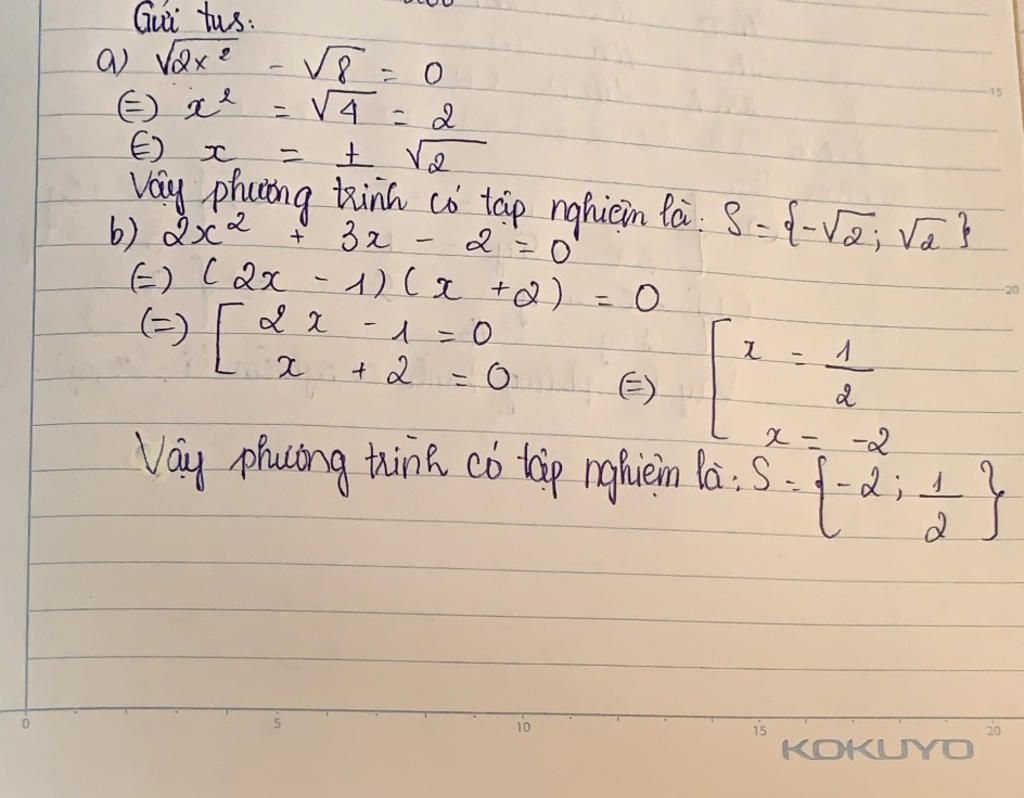 Gửi tus:
a) √2x² - √8 = 0
(=) x² = √4 = 2
(=) x = ± √2
Vậy phương trình có tập nghiệm là: S = {-√2; √2}
b) 2x² + 3x - 2 = 0
(=) (2x - 1)(x + 2) = 0
(=) [ 2x - 1 = 0
x + 2 = 0 (=) [ x = 1/2
x = -2
Vậy phương trình có tập nghiệm là: S = {-2; 1/2}
15
20
0 5 10 15 20
KOKUYO